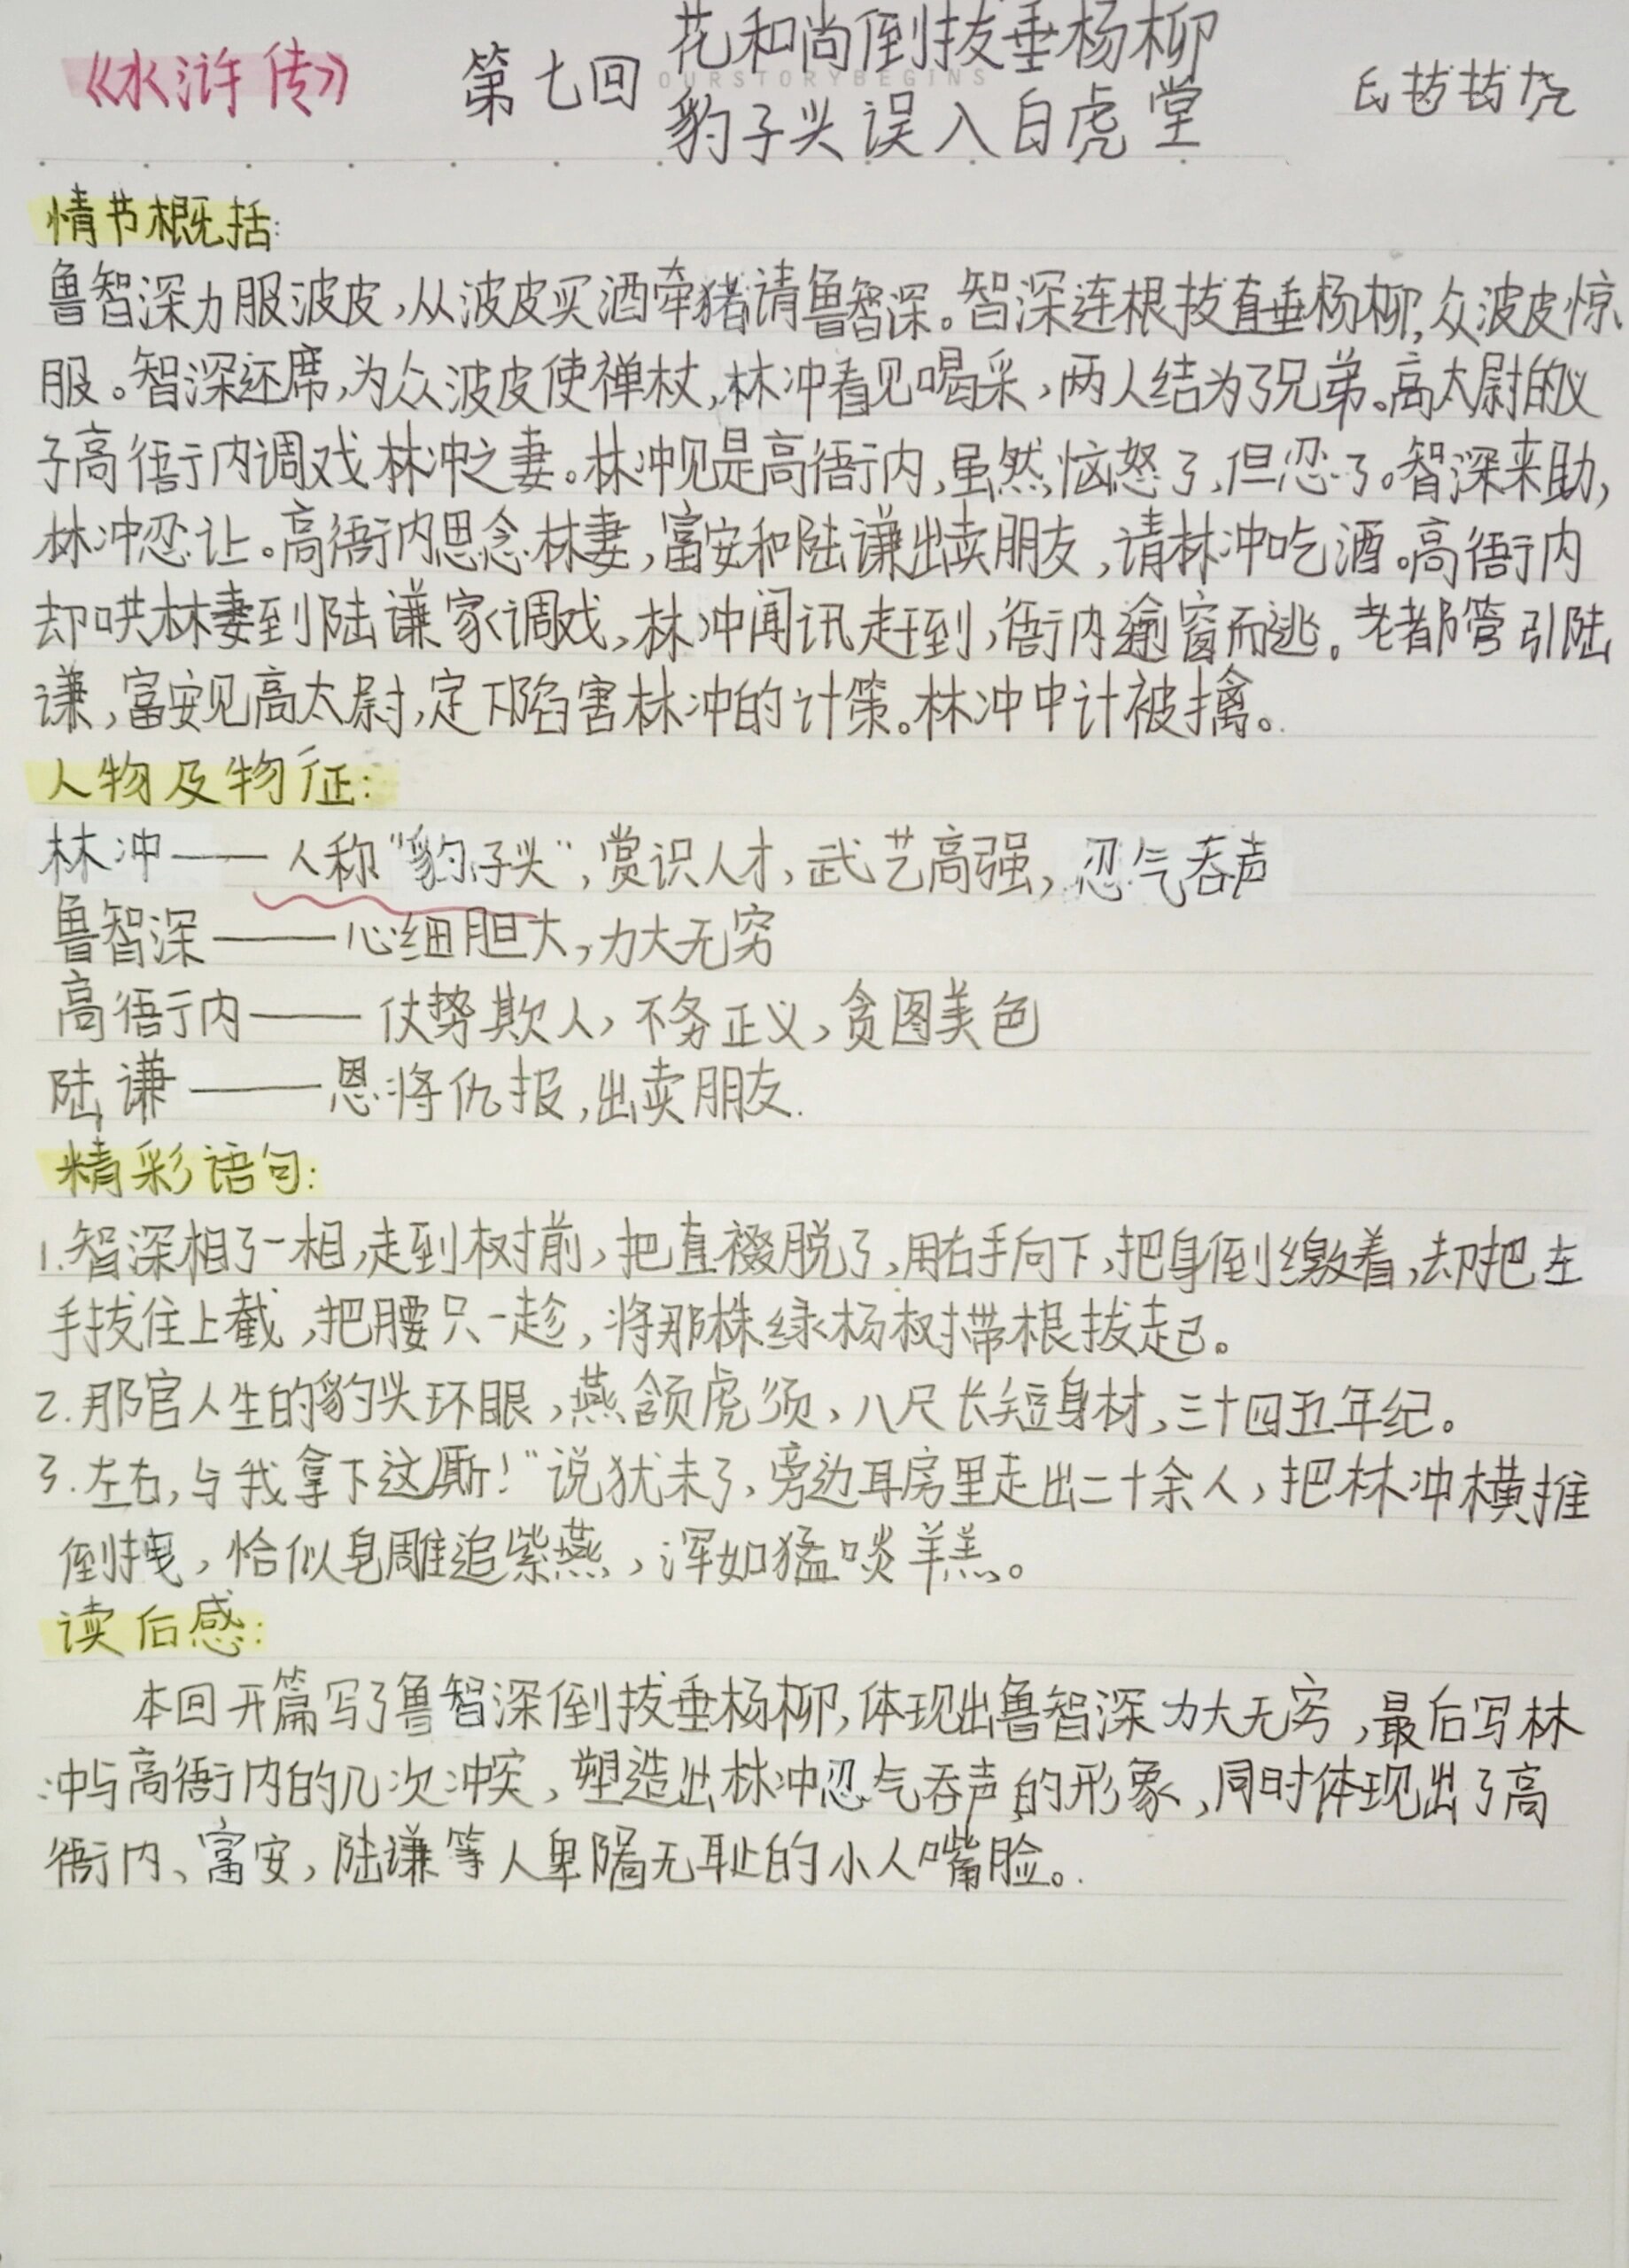 《水浒传》 第七回 花和尚倒拔垂杨柳
OURSTORYBEGINS
豹子头误入白虎堂
情节概括:
鲁智深力服波皮,从波皮买酒牵猪请鲁智深。智深连根拔直垂杨柳,众波皮惊
服。智深还席,为众波皮使禅杖,林冲看见喝采,两人结为了兄弟。高太尉的义
子高衙内调戏林冲之妻。林冲见是高衙内,虽然恼怒了,但忍了。智深来助,
林冲忍让。高衙内思念林妻,富安和陆谦出卖朋友,请林冲吃酒。高衙内
却哄林妻到陆谦家调戏,林冲闻讯赶到,衙内逾窗而逃。老都管引陆
谦,富安见高太尉,定下陷害林冲的计策。林冲中计被擒。
人物及物征:
林冲——人称“豹子头”,赏识人才,武艺高强,忍气吞声
鲁智深——心细胆大,力大无穷
高衙内——仗势欺人,不务正义,贪图美色
陆谦——恩将仇报,出卖朋友.
精彩语句:
1.智深相了一相,走到树前,把直裰脱了,用右手向下,把身倒缴着,却把左
手拔住上截,把腰只一趁,将那株绿杨树带根拔起。
2.那官人生的豹头环眼,燕颔虎须,八尺长短身材,三十四五年纪。
3.左右,与我拿下这厮!”说犹未了,旁边耳房里走出二十余人,把林冲横推
倒拽,恰似皂雕追紫燕,浑如猛啖羊羔。
读后感:
本回开篇写了鲁智深倒拔垂杨柳,体现出鲁智深力大无穷,最后写林
冲与高衙内的几次冲突,塑造出林冲忍气吞声的形象,同时体现出了高
衙内、富安,陆谦等人卑隔无耻的小人嘴脸。